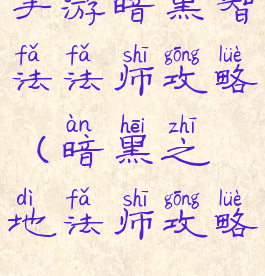 手游暗黑智
fǎ fǎ shī gōng lüè
法法师攻略
àn hēi zhī
(暗黑之
dì fǎ shī gōng lüè
地法师攻略